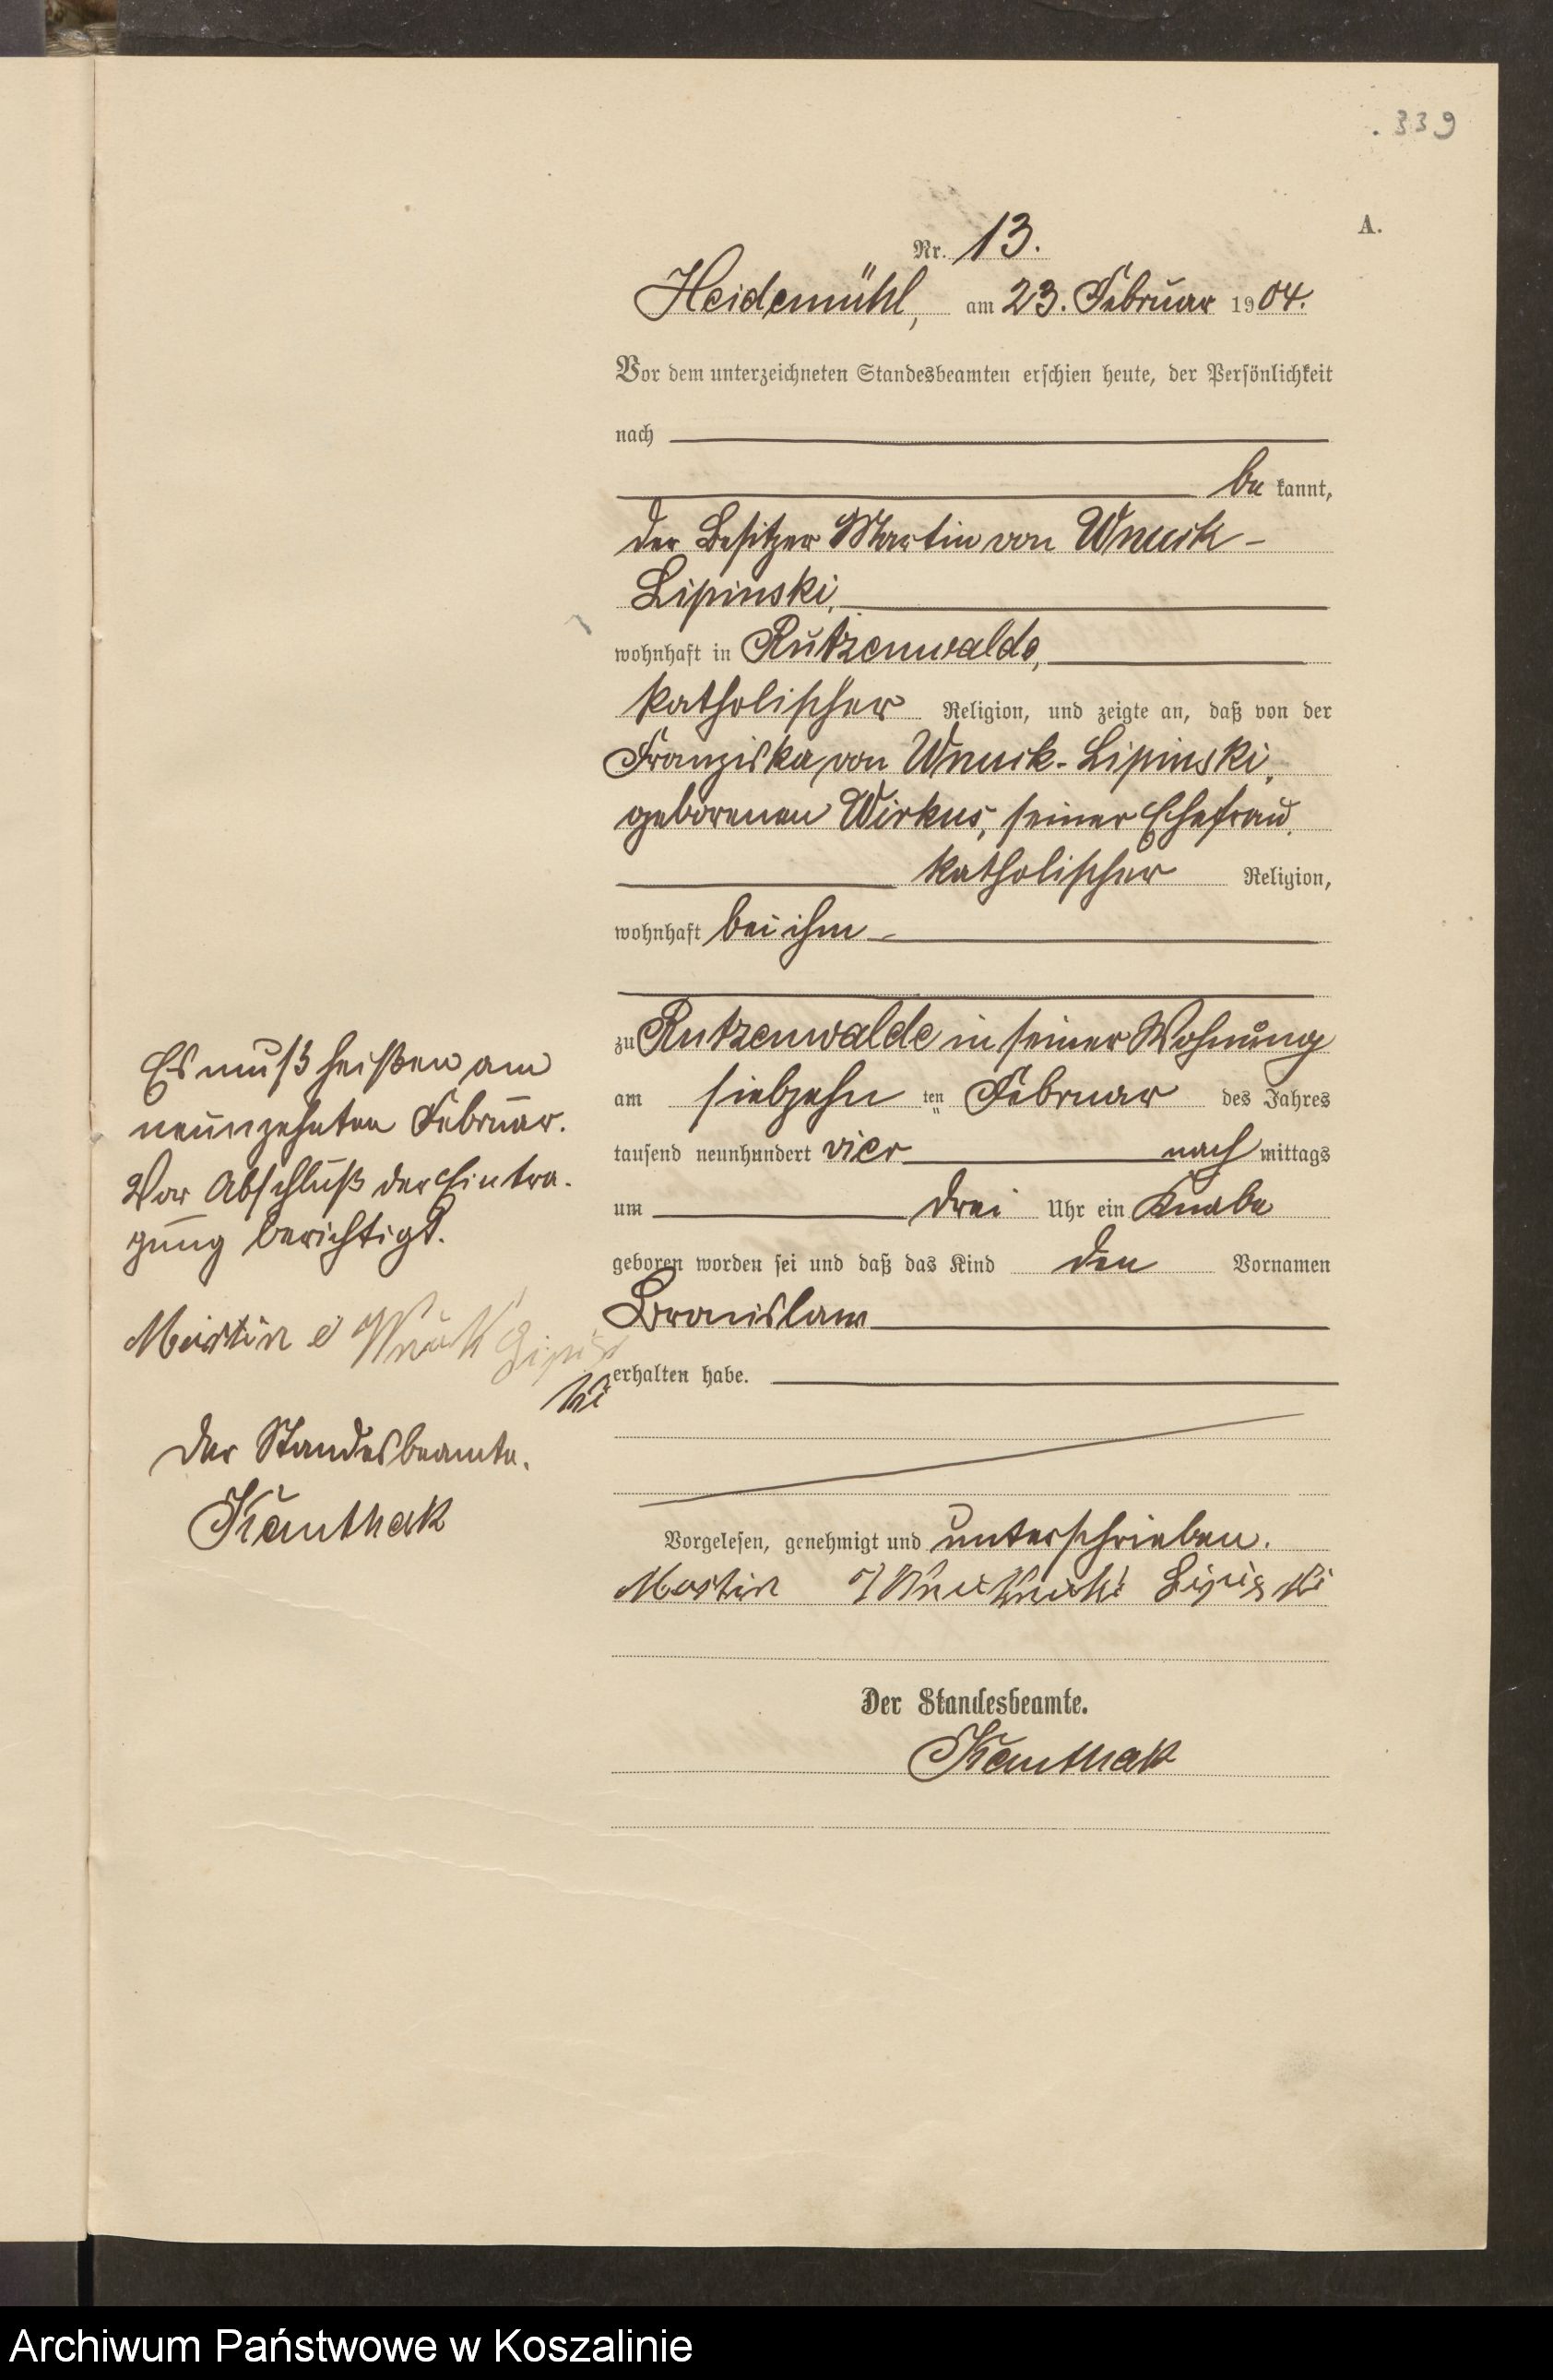 339
A.
Nr. 13.
Heidemühl, am 23. Februar 1904.
Vor dem unterzeichneten Standesbeamten erschien heute, der Persönlichkeit
nach
be kannt,
der Besitzer Martin von Wnuck-
Lipinski,
wohnhaft in Rutzenwalde,
katholischer Religion, und zeigte an, daß von der
Franziska von Wnuck-Lipinski,
geborenen Wirkus, seiner Ehefrau,
katholischer Religion,
wohnhaft bei ihm
zu Rutzenwalde in seiner Wohnung
am siebzehn ten Februar des Jahres
tausend neunhundert vier nach mittags
um drei Uhr ein Knabe
geboren worden sei und daß das Kind den Vornamen
Bronislaw
erhalten habe.
Vorgelesen, genehmigt und unterschrieben.
Martin Lipinski
Der Standesbeamte.
Kanthak
Es muß heißen am
neunzehnten Februar.
Vor Abschluß der Eintra-
gung berichtigt.
Martin v Wnuck Lipins
ki
Der Standesbeamte.
Kanthak
Archiwum Państwowe w Koszalinie